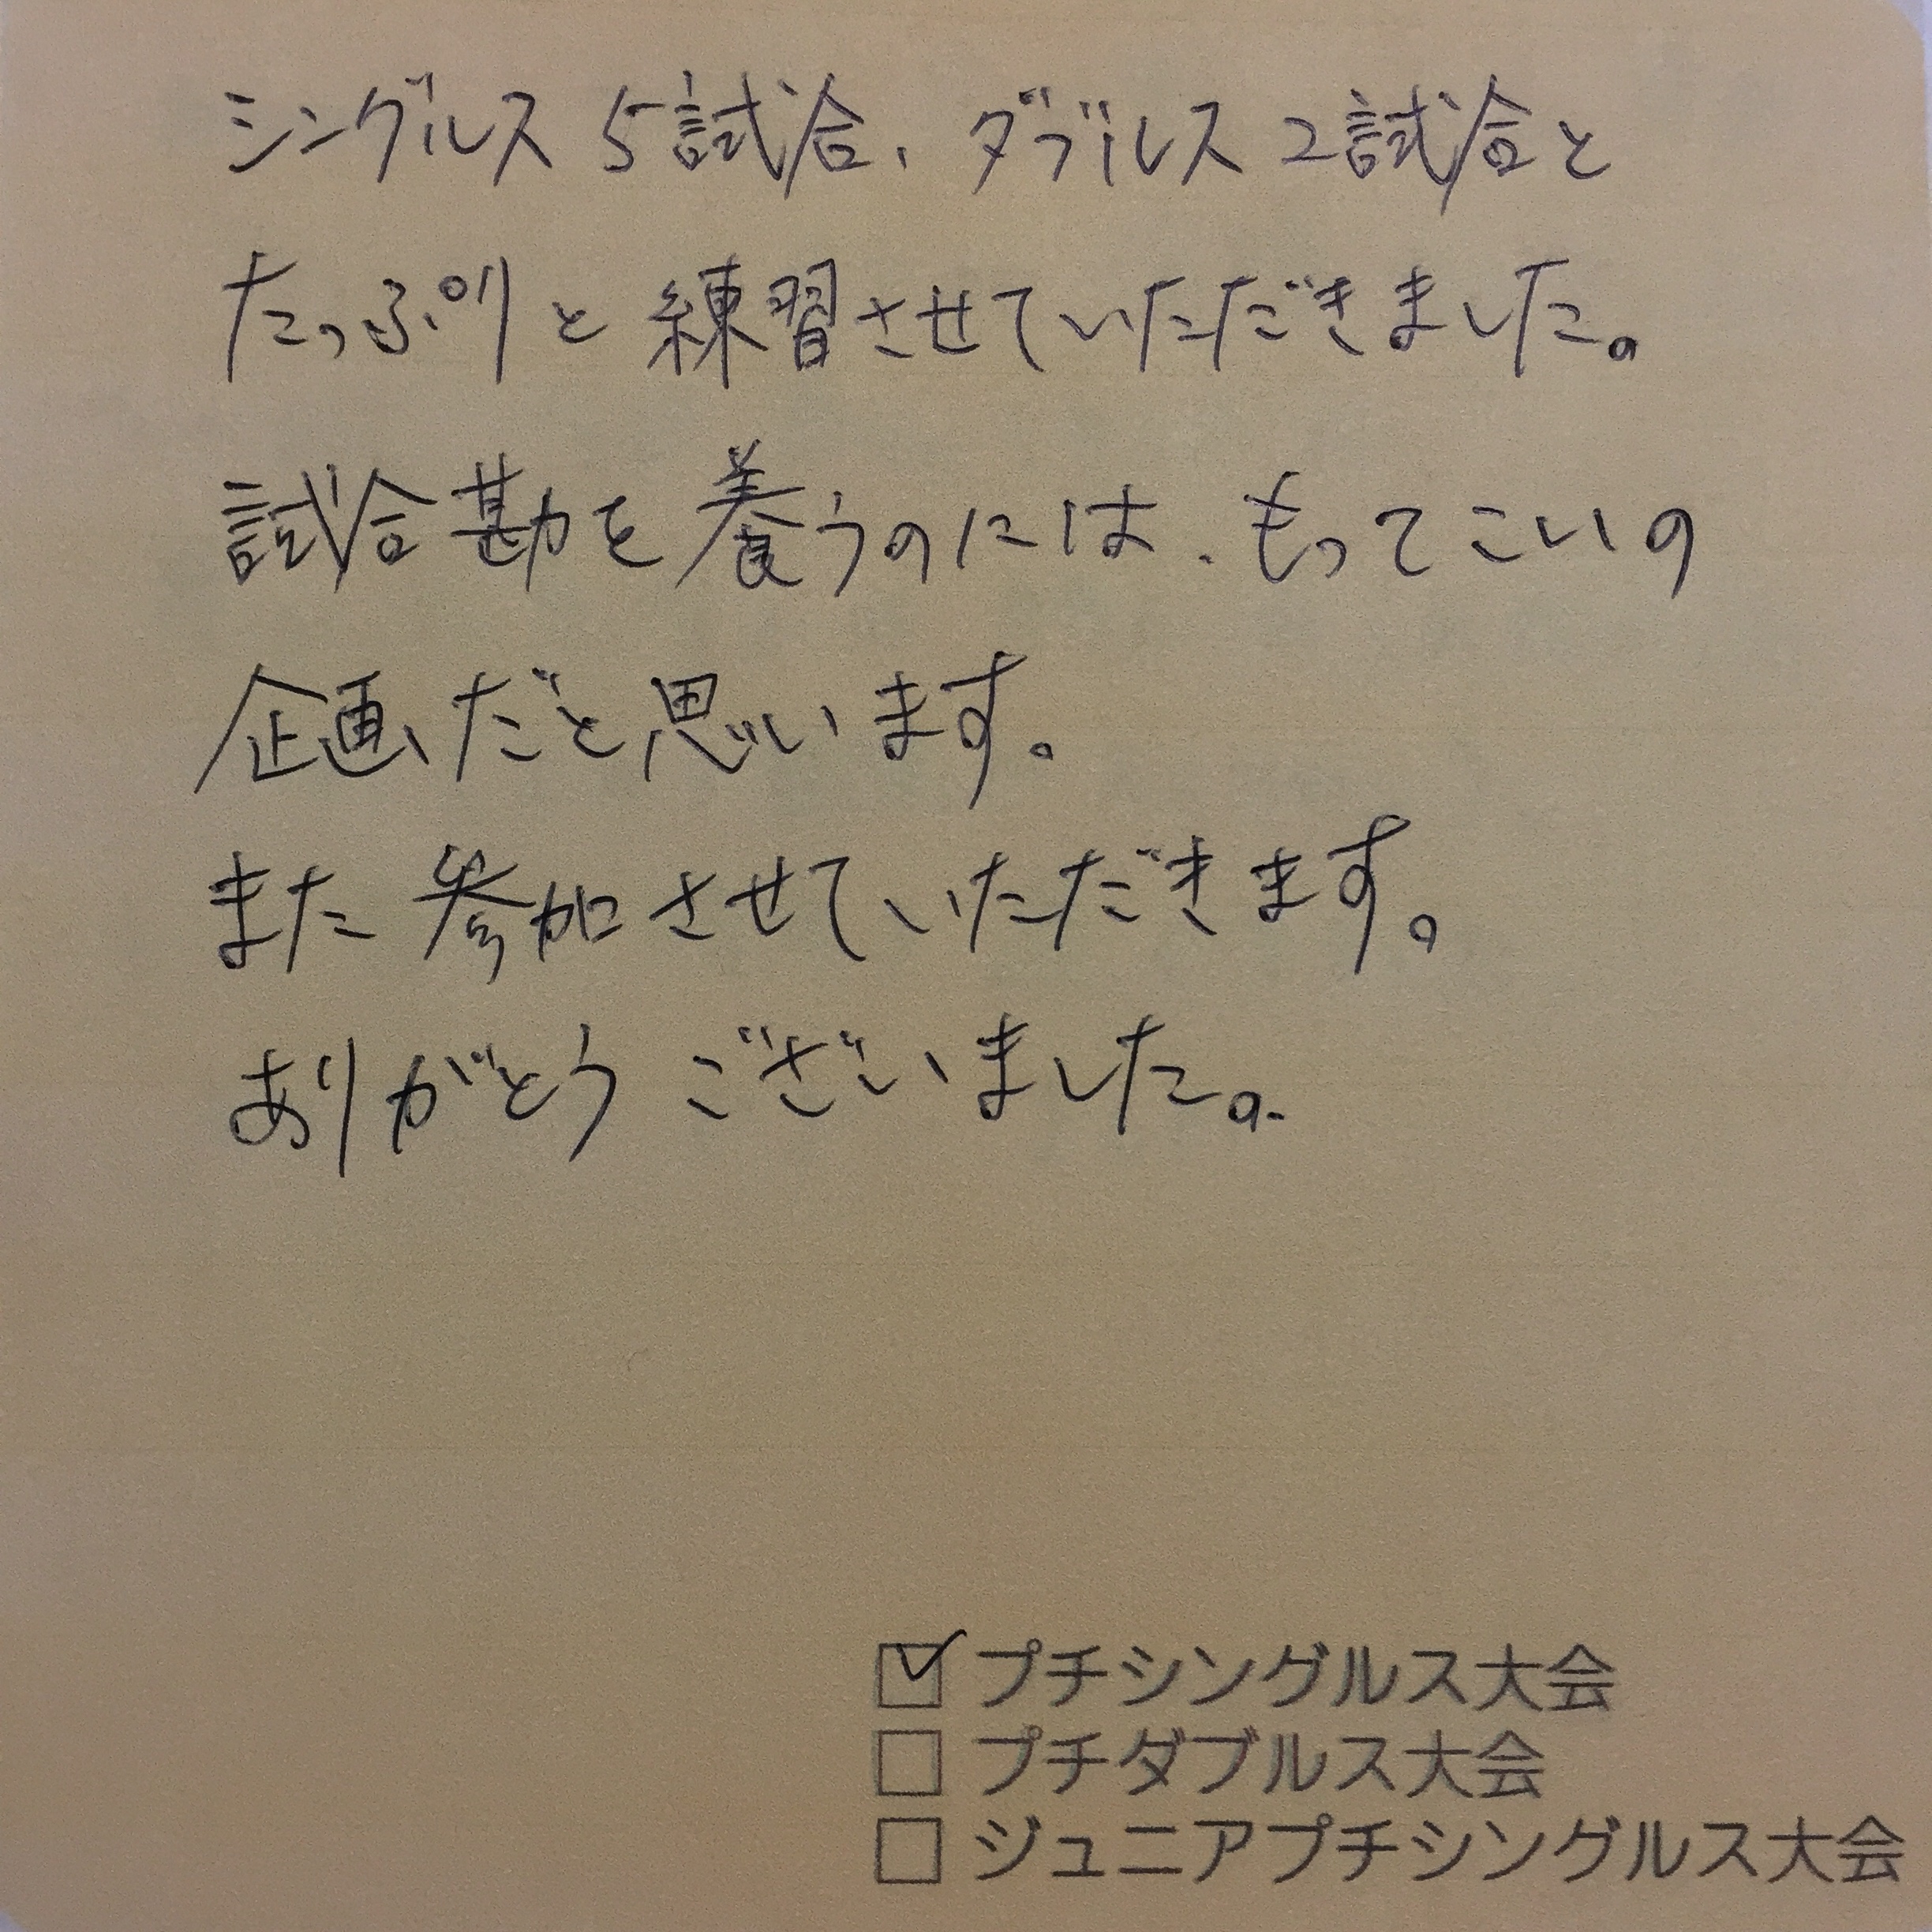 シングルス 5試合、ダブルス 2試合と
たっぷりと練習させていただきました。
試合勘を養うのには、もってこいの
企画だと思います。
また参加させていただきます。
ありがとうございました。
☑ プチシングルス大会
☐ プチダブルス大会
☐ ジュニアプチシングルス大会